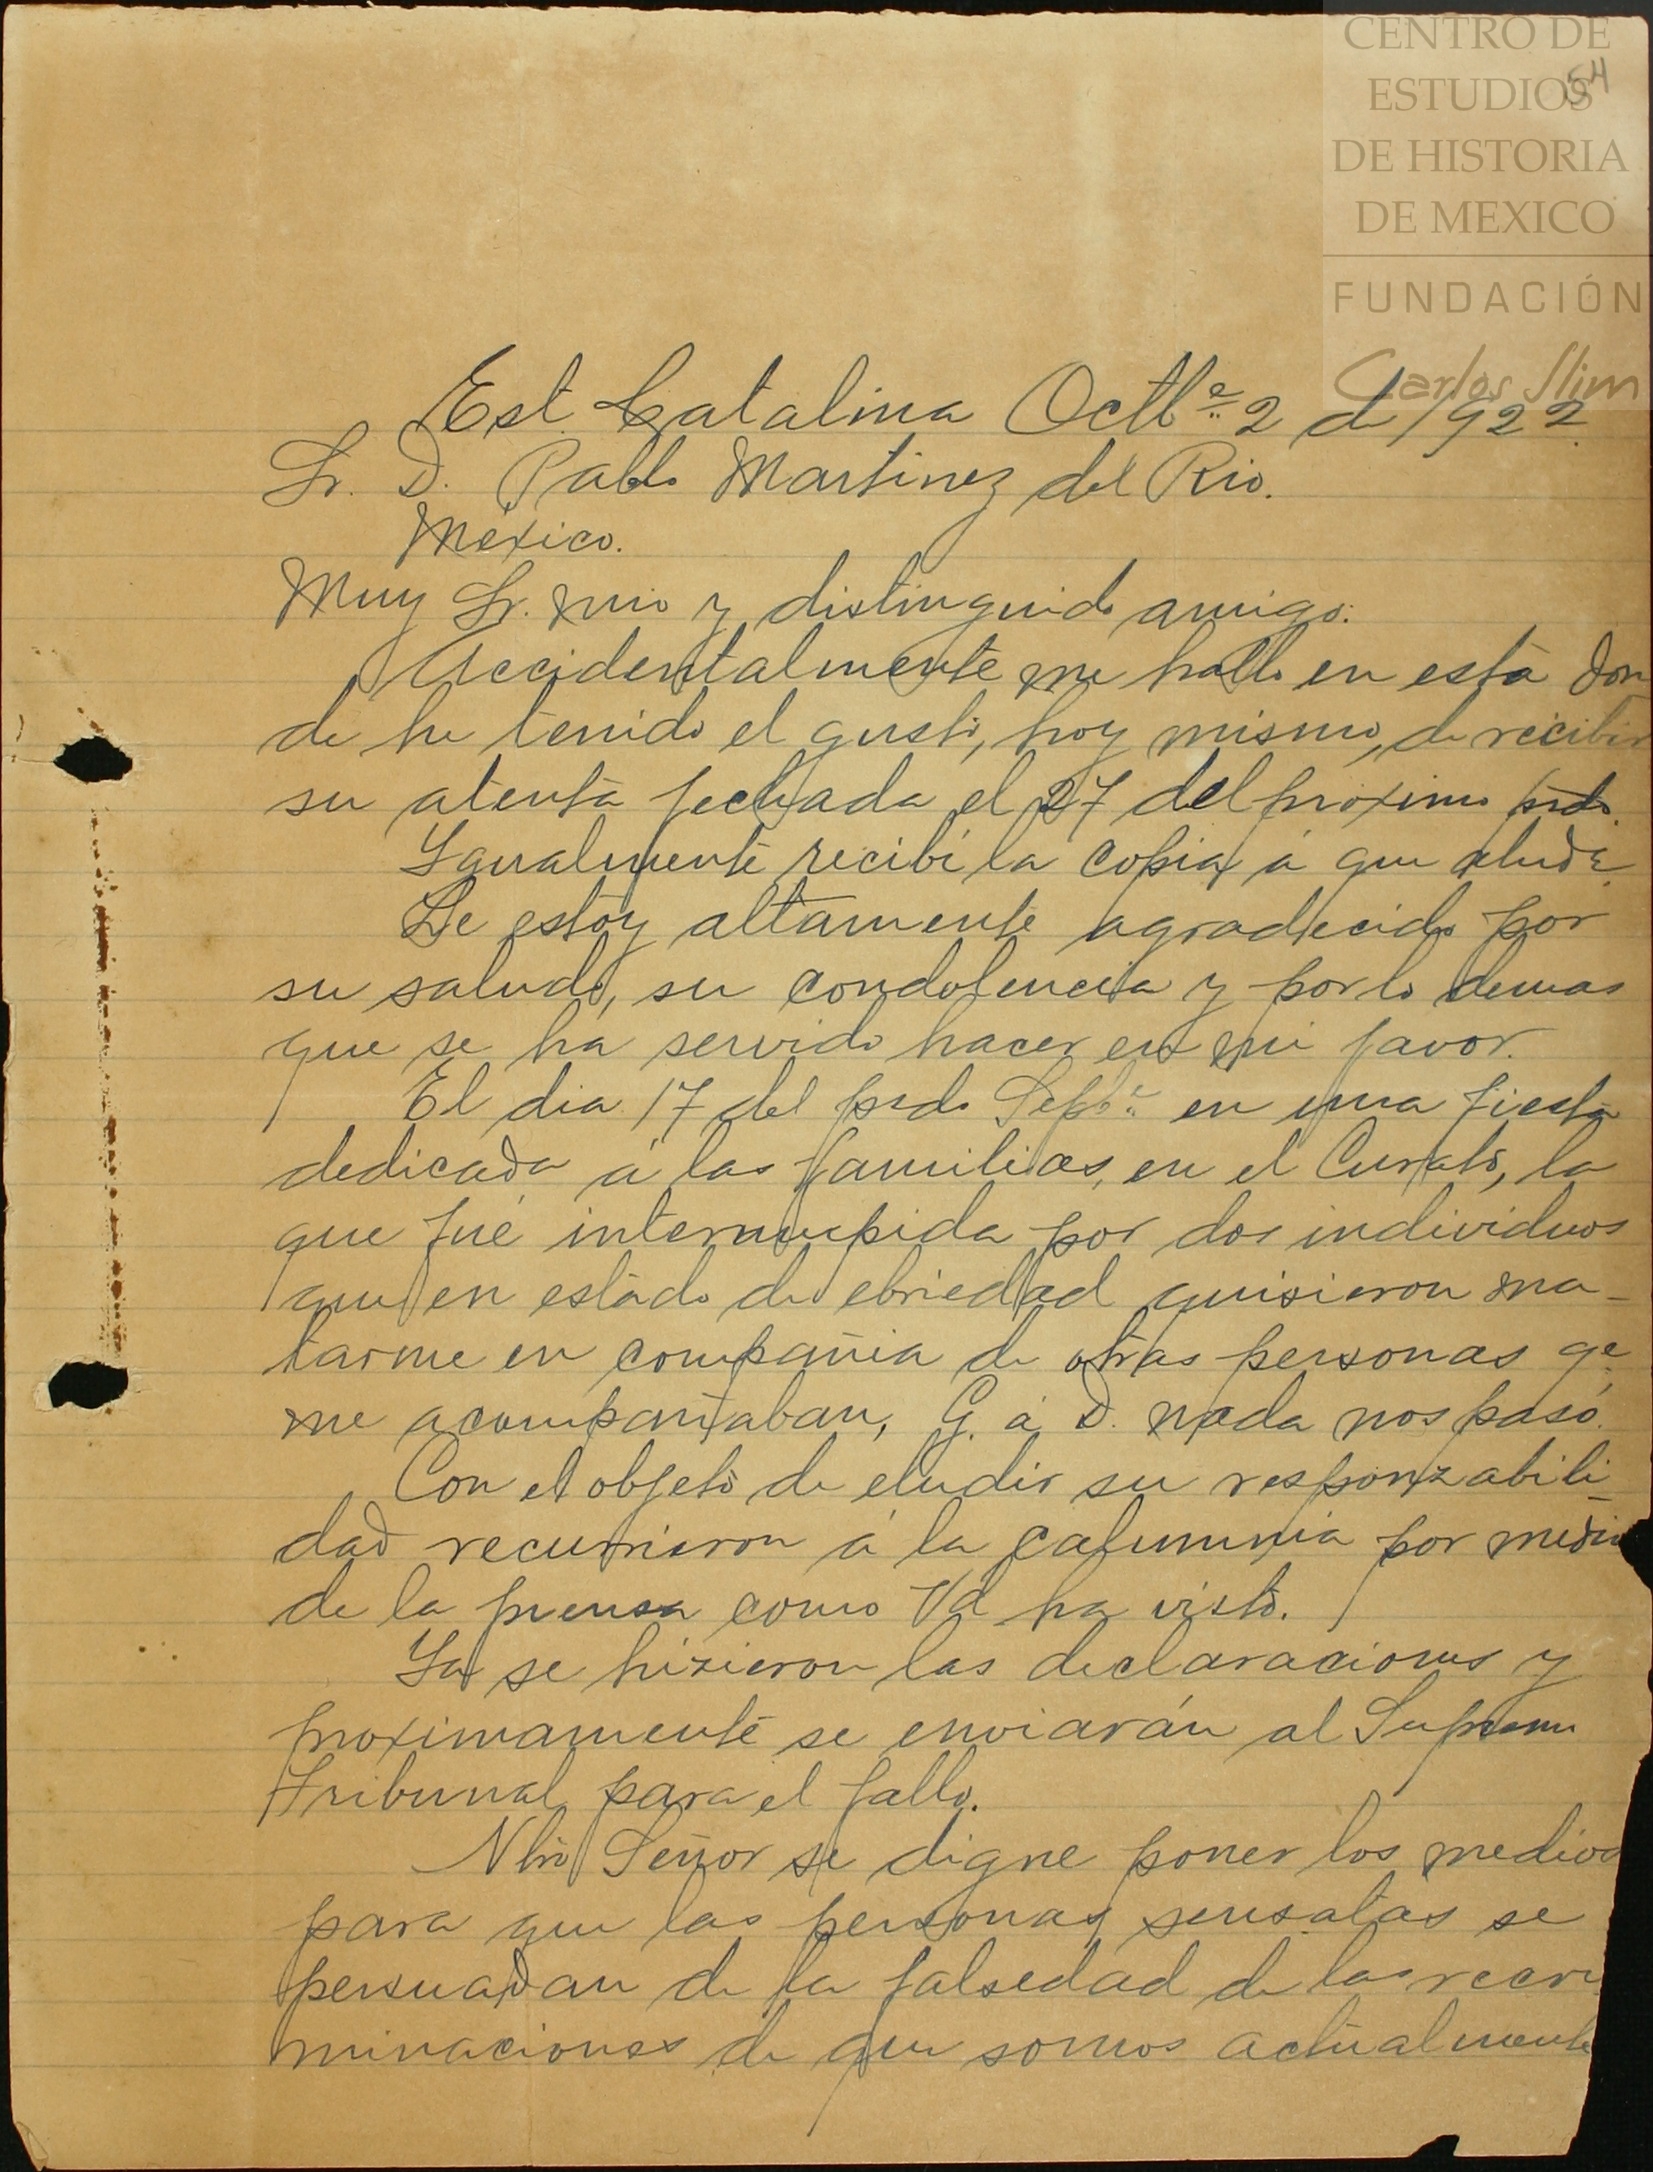 CENTRO DE
ESTUDIOS
DE HISTORIA
DE MEXICO
FUNDACIÓN
Carlos Slim
54
Est. Catalina Octbe. 2 de 1922.
Sr. D. Pablo Martinez del Rio.
México.
Muy Sr. mio y distinguido amigo:
Accidentalmente me hallo en esta don
de he tenido el gusto, hoy mismo, de recibir
su atenta fechada el 27 del proximo psdo.
Igualmente recibí la copia á que alude.
Le estoy altamente agradecido por
su saludo, su condolencia y por lo demas
que se ha servido hacer en mi favor.
El dia 17 del psdo Sepbe. en una fiesta
dedicada á las familias, en el Curato, la
que fué interrumpida por dos individuos
que en estado de ebriedad quisieron ma-
tarme en compañia de otras personas qe.
me acompañaban, G. á D. nada nos pasó.
Con el objeto de eludir su responzabili
dad recurrieron á la calumnia por medio
de la prensa como Vd ha visto.
Ya se hizieron las declaraciones y
proximamente se enviarán al Supremo
Tribunal para el fallo.
Ntro Señor se digne poner los medios
para que las personas sensatas se
persuadan de la falsedad de las recri
minaciones de que somos actualmente